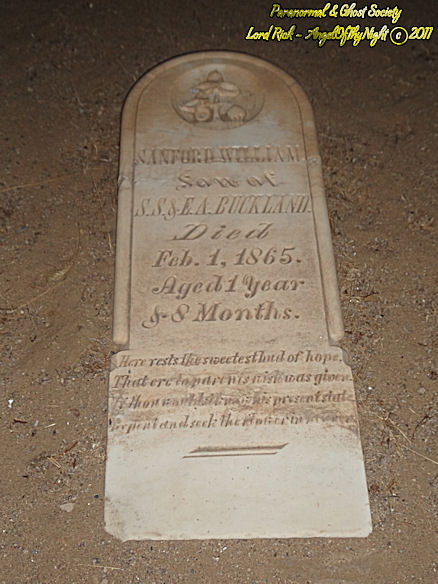 Paranormal & Ghost Society
Lord Rick ~ AngelOfThyNight © 2011
SANFORD WILLIAM
Son of
S.S. & E.A. BUCKLAND.
Died
Feb. 1, 1865.
Aged 1 Year
& 8 Months.
Here rests the sweetest bud of hope,
That ere to parents wish was given
If thou would'st know its present state
Repent and seek the flower in